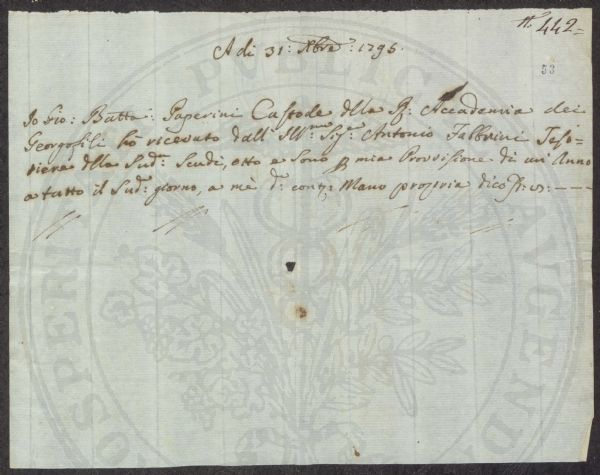 N.º 442=
A di 31: Xbre: 1795.
53
Io Gio: Batta: Paperini Custode della R: Accademia dei
Georgofili hò ricevuto dall Ill:mo Sig: Antonio Fabbrini Teso=
riere della Sud: Scudi, otto e Sono p mia Provvisione di un Anno
a tutto il Sud: giorno, a mè d: cont: Mano propria dico
PUBLICAE
PROSPERITATI
AUGENDAE